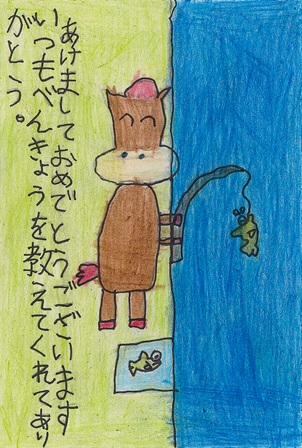 あけましておめでとうございます
いつもべんきょうを教えてくれてあり
がとう。